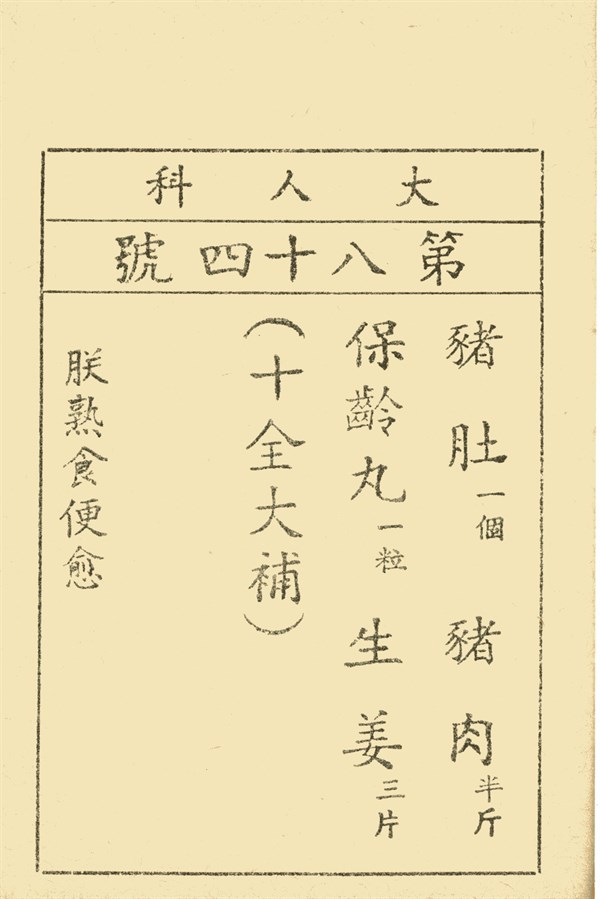 大人科
第八十四號
豬肚一個 豬肉半斤
保齡丸一粒 生姜三片
(十全大補)
朕熟食便愈